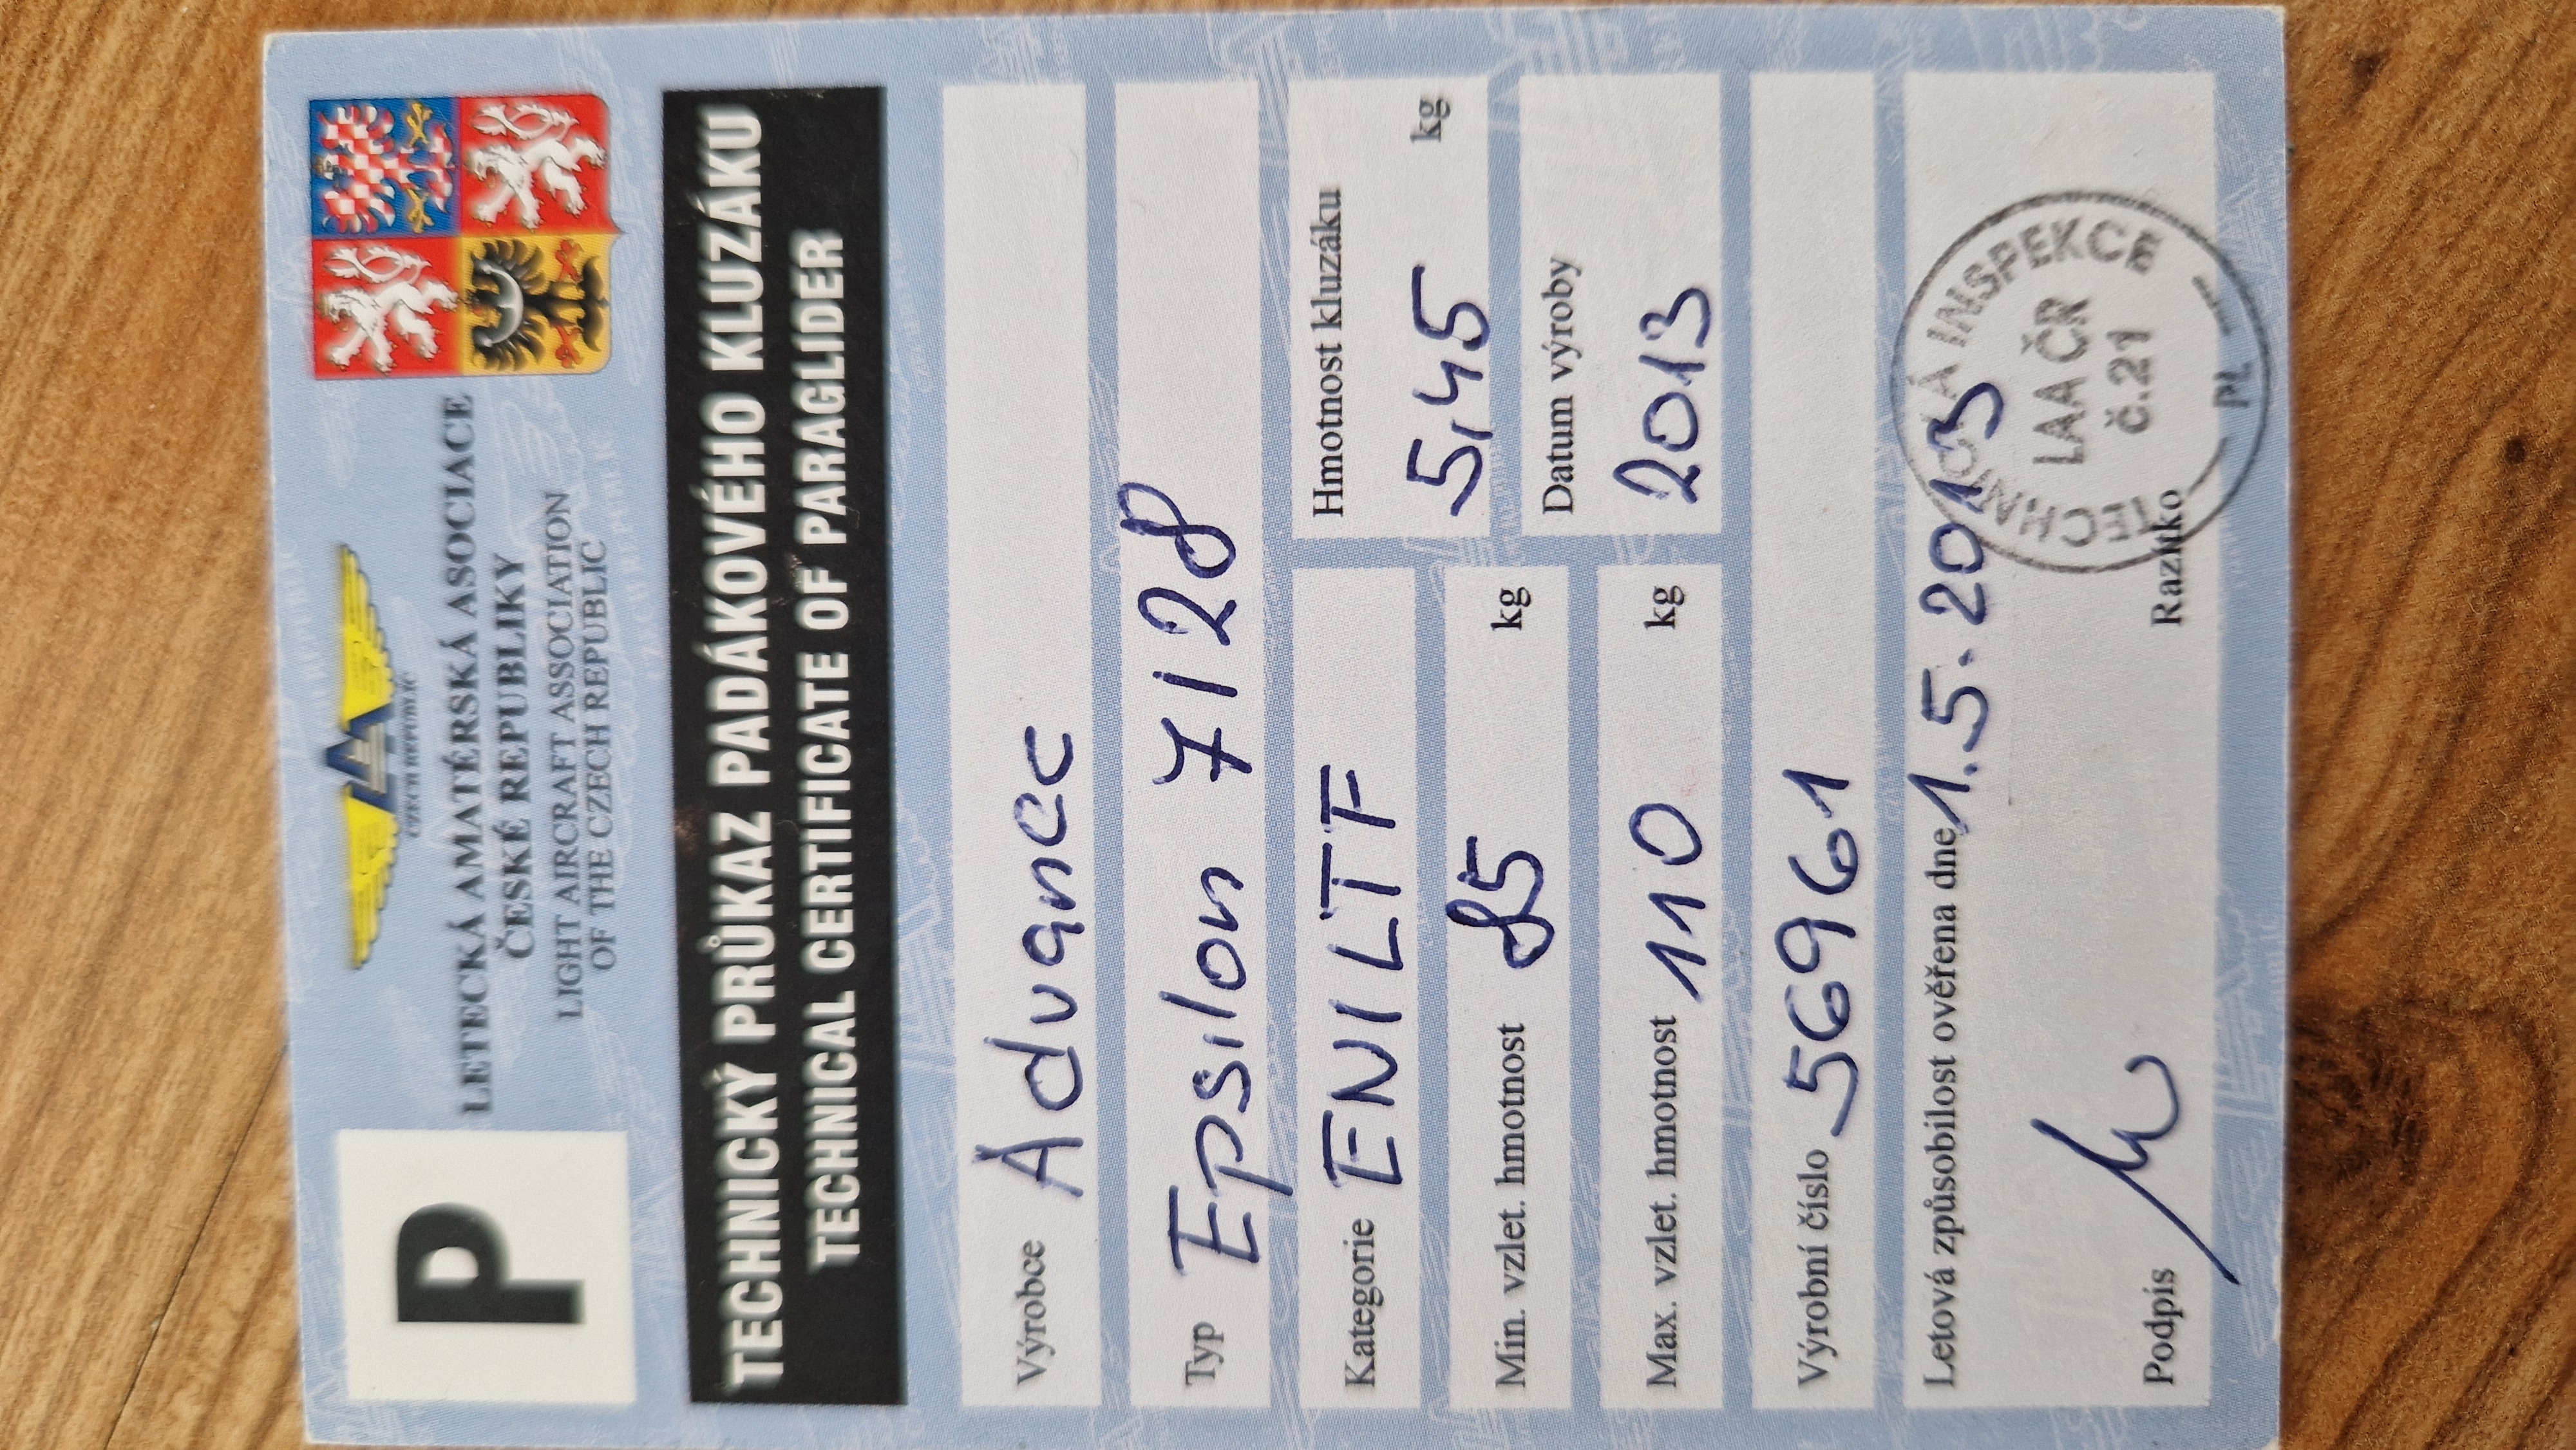 P
CZECH REPUBLIC
LETECKÁ AMATÉRSKÁ ASOCIACE
ČESKÉ REPUBLIKY
LIGHT AIRCRAFT ASSOCIATION
OF THE CZECH REPUBLIC
TECHNICKÝ PRŮKAZ PADÁKOVÉHO KLUZÁKU
TECHNICAL CERTIFICATE OF PARAGLIDER
Výrobce Advanec
Typ Epsilon 7/28
Kategorie EN/LTF
Hmotnost kluzáku
5,45 kg
Min. vzlet. hmotnost 85 kg
Datum výroby
2013
Max. vzlet. hmotnost 110 kg
Výrobní číslo 56961
Letová způsobilost ověřena dne 1.5.2013
TECHNICKÁ INSPEKCE
LAA ČR
č.21
PL
Podpis
Razítko